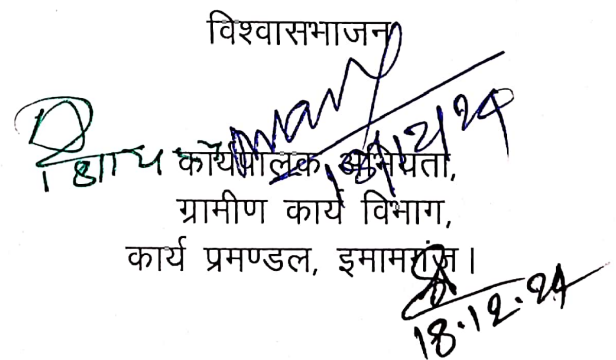 विश्वासभाजन
18/12/24
कार्यपालक अभियंता,
ग्रामीण कार्य विभाग,
कार्य प्रमण्डल, इमामगंज।
18.12.24